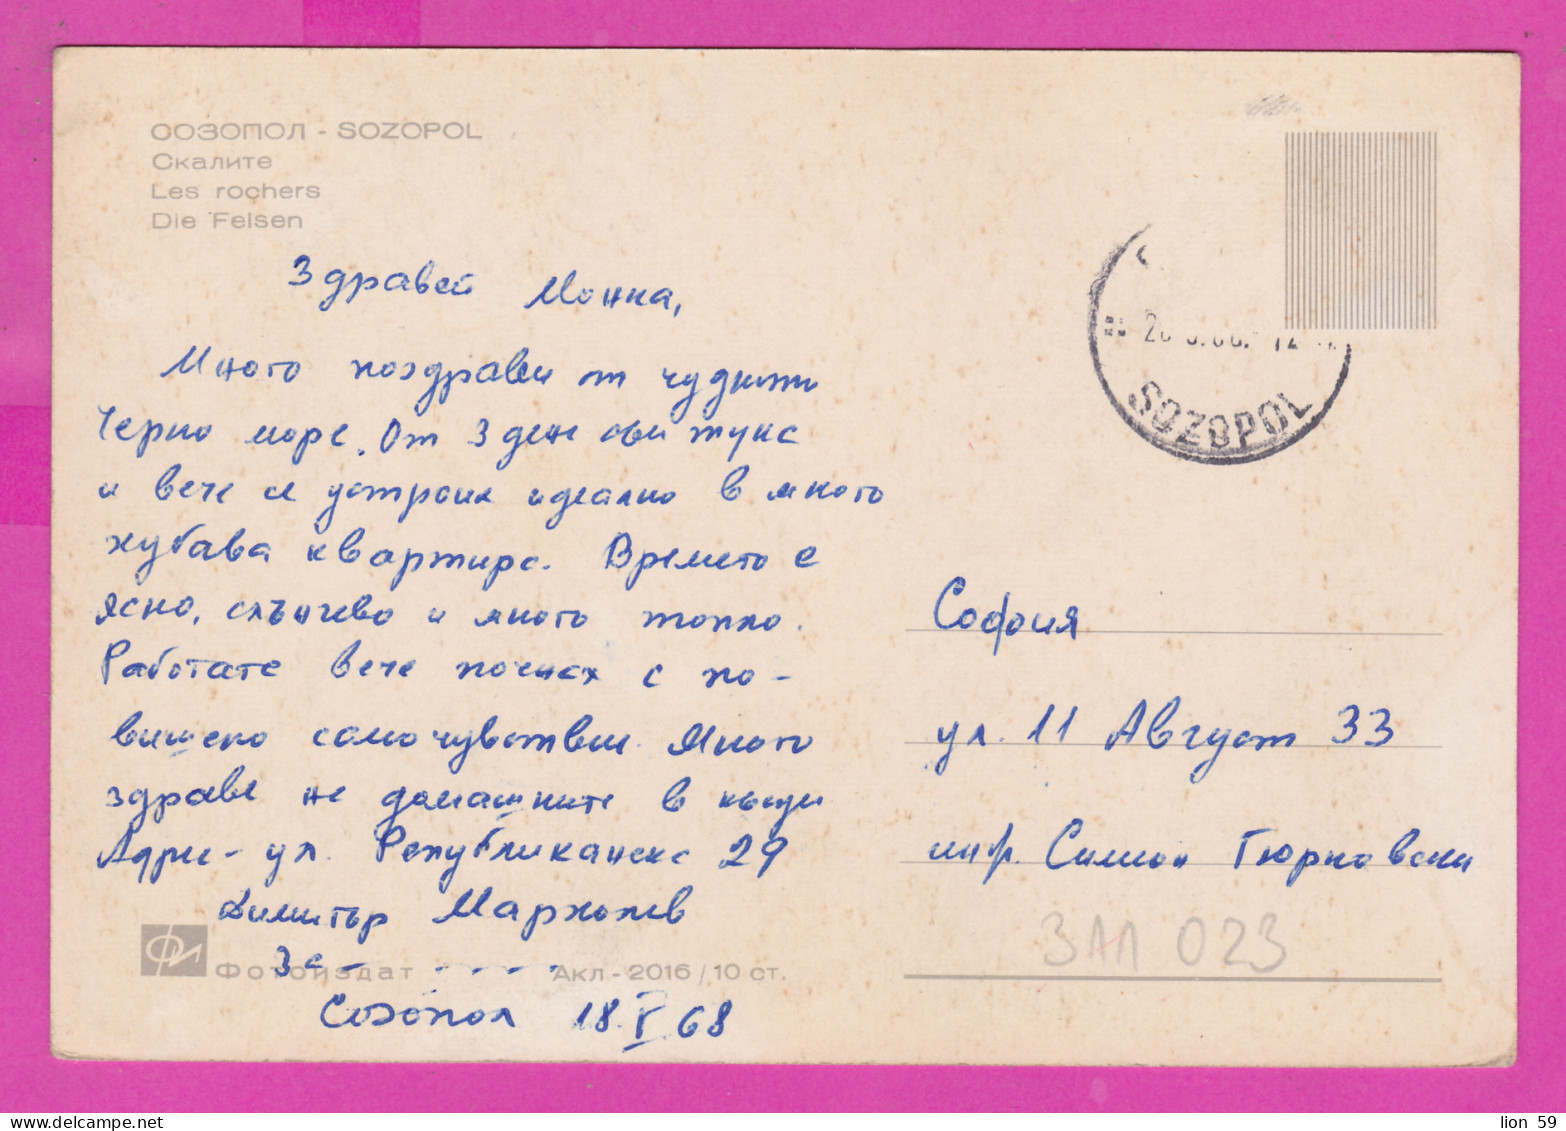 СОЗОПОЛ - SOZOPOL
Скалите
Les rochers
Die Felsen
Здравей Монка,
Много поздрави от чудното
Черно море. От 3 дена съм тука
и вече се устроих идеално в много
хубава квартира. Времето е
ясно, слънчево и много топло.
Работата вече почнах с по-
вишено самочувствие. Много
здраве на домашните в къщи
Адрес - ул. Републиканска 29
Димитър
За - . . . . .
Фотоиздат Акл-2016/10 ст.
Созопол 18 V 68
SOZOPOL
София
ул. 11 Август 33
инж. Симеон Гюрковски
311 023
www.delcampe.net
lion 59